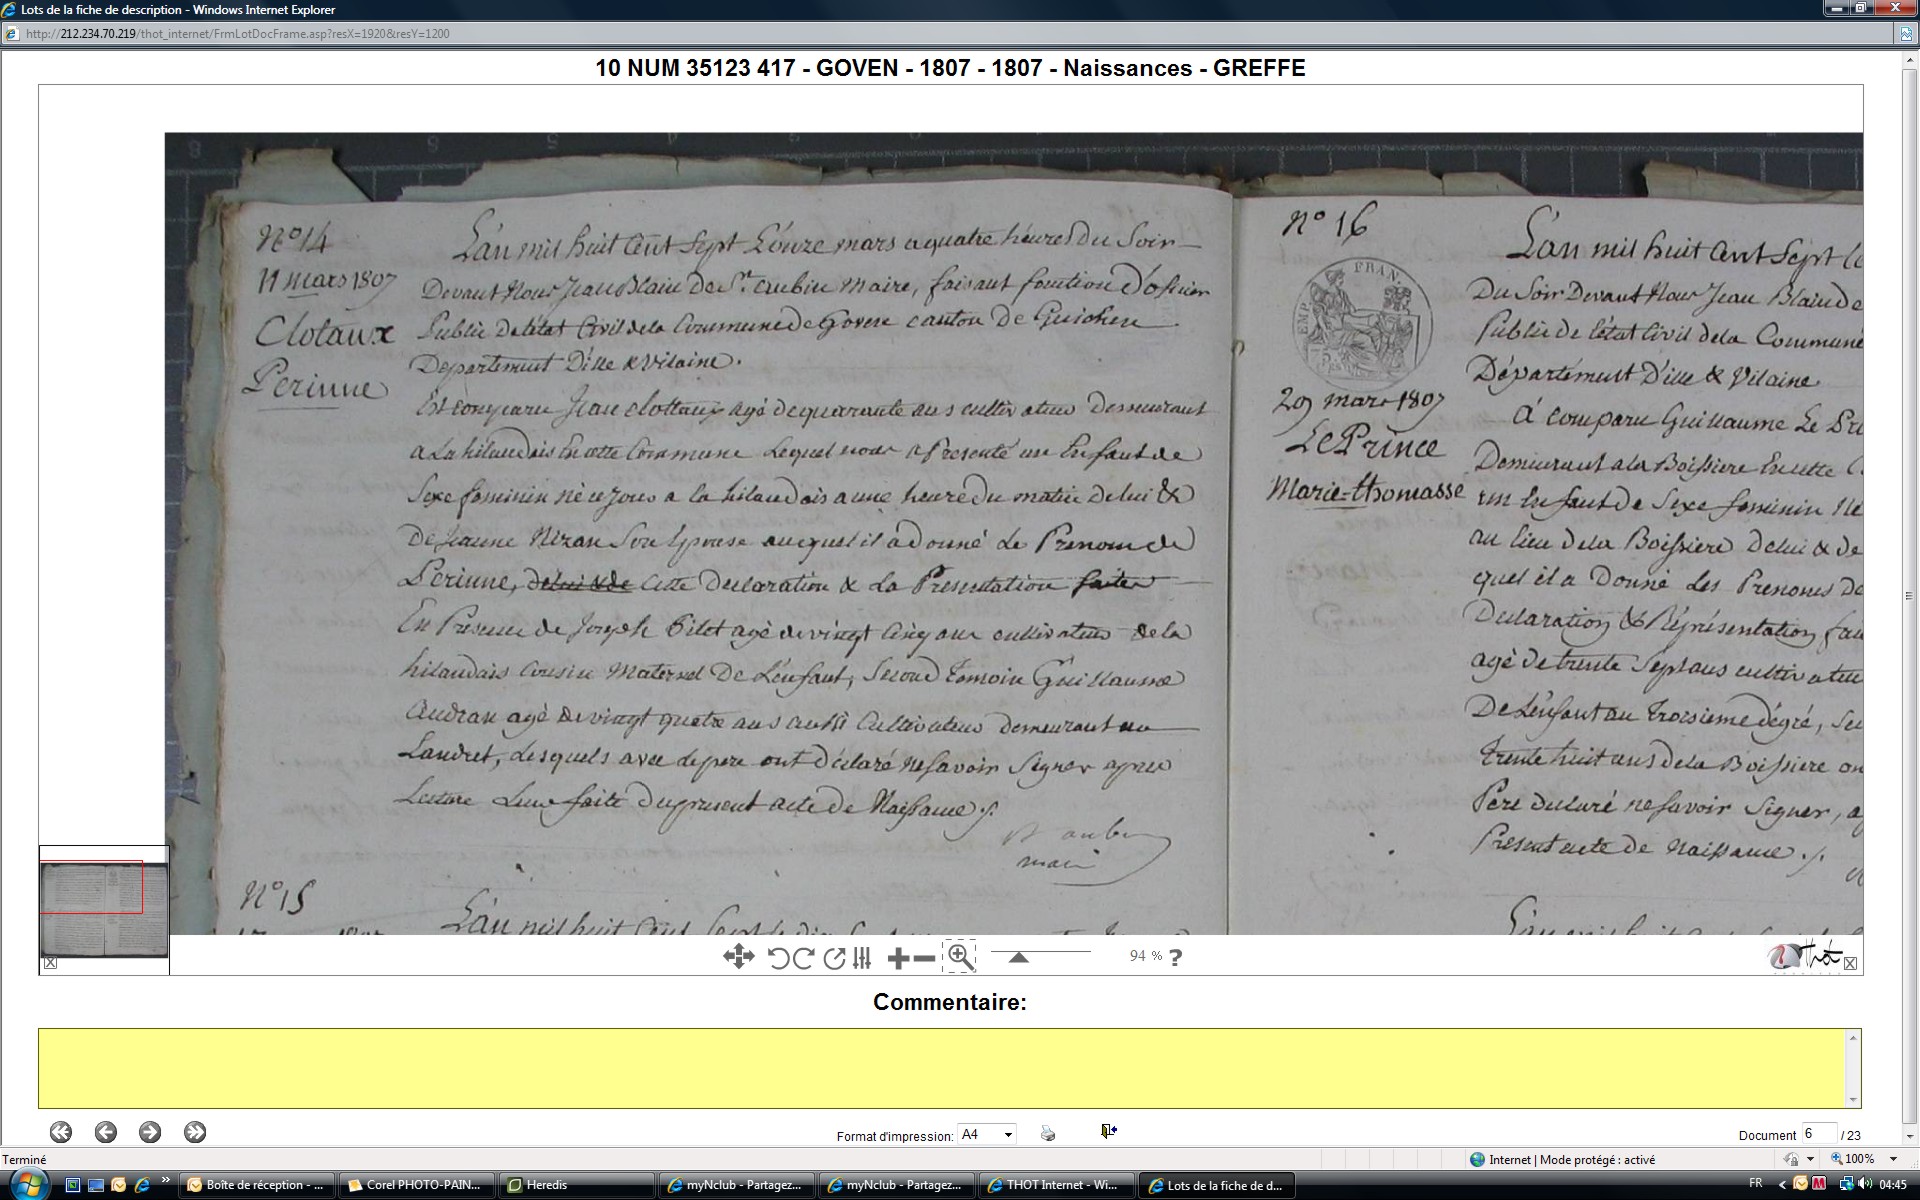 Lots de la fiche de description - Windows Internet Explorer
http://212.234.70.219/thot_internet/FrmLotDocFrame.asp?resX=1920&resY=1200
10 NUM 35123 417 - GOVEN - 1807 - 1807 - Naissances - GREFFE
N° 14
11 mars 1807
Clotaux
Perinne
L'an mil huit cent sept L'onze mars a quatre heures du Soir
Devant Nous Jean Blain de St. aubin Maire, faisant fonction d'officier
Public de l'état Civil de la Commune de Goven canton de Guichen
Departement D'ille & Vilaine.
Est comparu Jean Clottaux agé de quarante ans cultivateur demeurant
a La hilandais En cette Commune Lequel nous a Presenté un Enfant de
Sexe feminin né ce jour a la hilandais a une heure du matin de lui &
De Jeanne Nizan Son Epouse auquel il a donné Le Prenom de
Perinne, de lui & de Cette Declaration & La Presentation faites
En Presence de Joseph Pilet agé de vingt Cinq ans cultivateur de la
hilandais cousin Maternel De L'enfant, Second Temoin Guillaume
Audran agé de vingt quatre ans aussi Cultivateur demeurant au
Landret, desquels avec le pere ont déclaré ne savoir Signer apres
Lecture Leur faite du present acte de Naissance ./.
St aubin
maire
N° 15
L'an mil huit Cent Sept le dix
N° 16
EMP. FRAN.
29 mars 1807
Le Prince
Marie=thomasse
L'an mil huit Cent Sept L
Du Soir Devant Nous Jean Blain de
Public de l'état Civil de la Commune
Département D'ille & Vilaine
A comparu Guillaume Le Pri
Demeurant a la Boissiere En cette C
un Enfant de Sexe feminin Né
au lieu de la Boissiere de lui & de
quel il a Donné Les Prenoms de
Declaration & Réprésentation fai
agé de trente Sept ans cultivateu
De L'enfant au Troisieme dégré, Se
trente huit ans de la Boissiere on
Pere declaré ne savoir Signer, a
Present acte de Naissance ./.
L'an mil huit Cent Sept
94 % ?
Thot
Commentaire:
Format d'impression: A4
Document 6 / 23
Terminé
Internet | Mode protégé : activé
100%
Boîte de réception - ...
Corel PHOTO-PAIN...
Heredis
myNclub - Partagez...
myNclub - Partagez...
THOT Internet - Wi...
Lots de la fiche de d...
FR
04:45